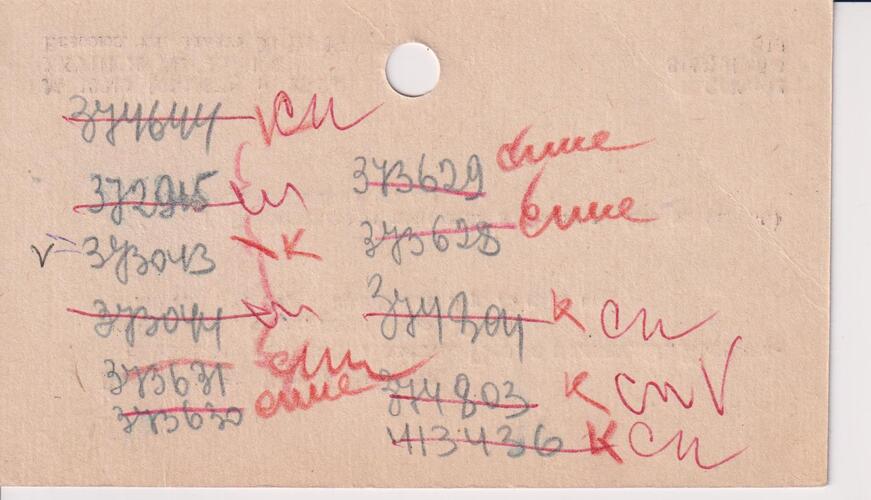 374644 КСП
372945 сп
V 373043 К
373044 сп
373631 спи
373630 спис
373629 спис
373628 спис
374804 К СП
374803 К СП V
413436 К СП